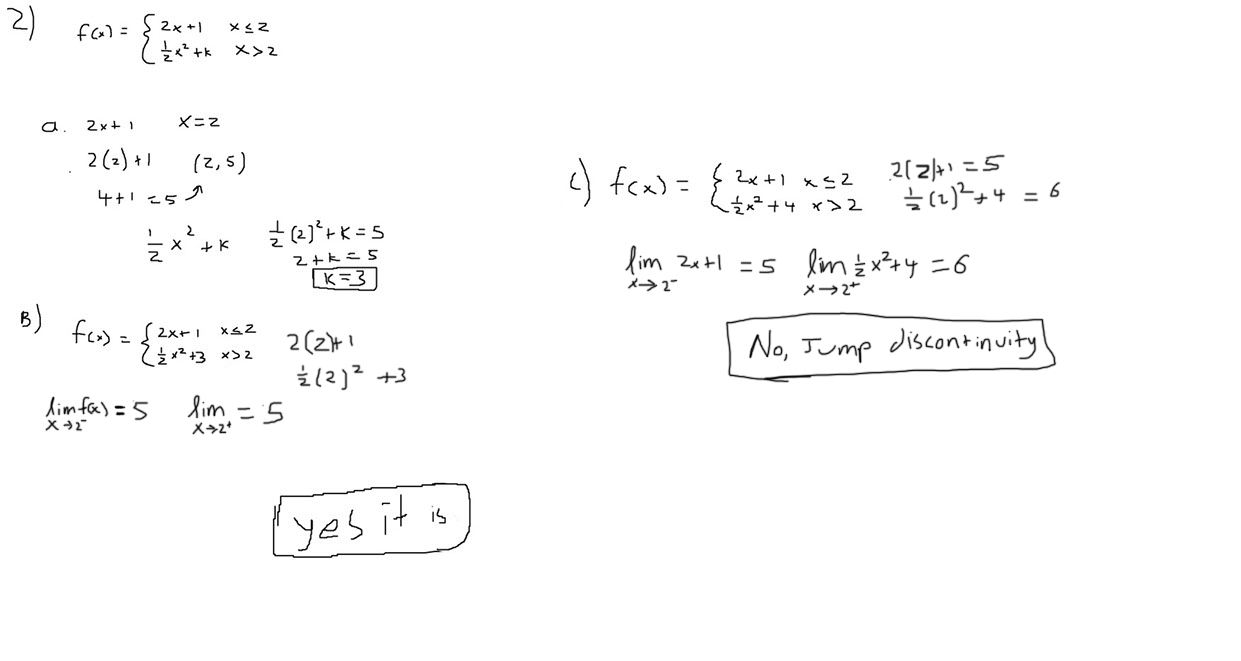 2)
f(x) = { 2x+1 x ≤ 2
½x² + k x > 2
a. 2x+1 x=2
2(2)+1 (2,5)
4+1 = 5
½x² + k ½(2)² + k = 5
2+k = 5
k=3
B) f(x) = { 2x+1 x≤2
½x²+3 x>2
2(2)+1
½(2)² +3
lim f(x) = 5 lim = 5
x→2⁻ x→2⁺
yes it is
c) f(x) = { 2x+1 x ≤ 2 2(2)+1 = 5
½x²+4 x > 2 ½(2)²+4 = 6
lim 2x+1 = 5 lim ½x²+4 = 6
x→2⁻ x→2⁺
No, Jump discontinuity